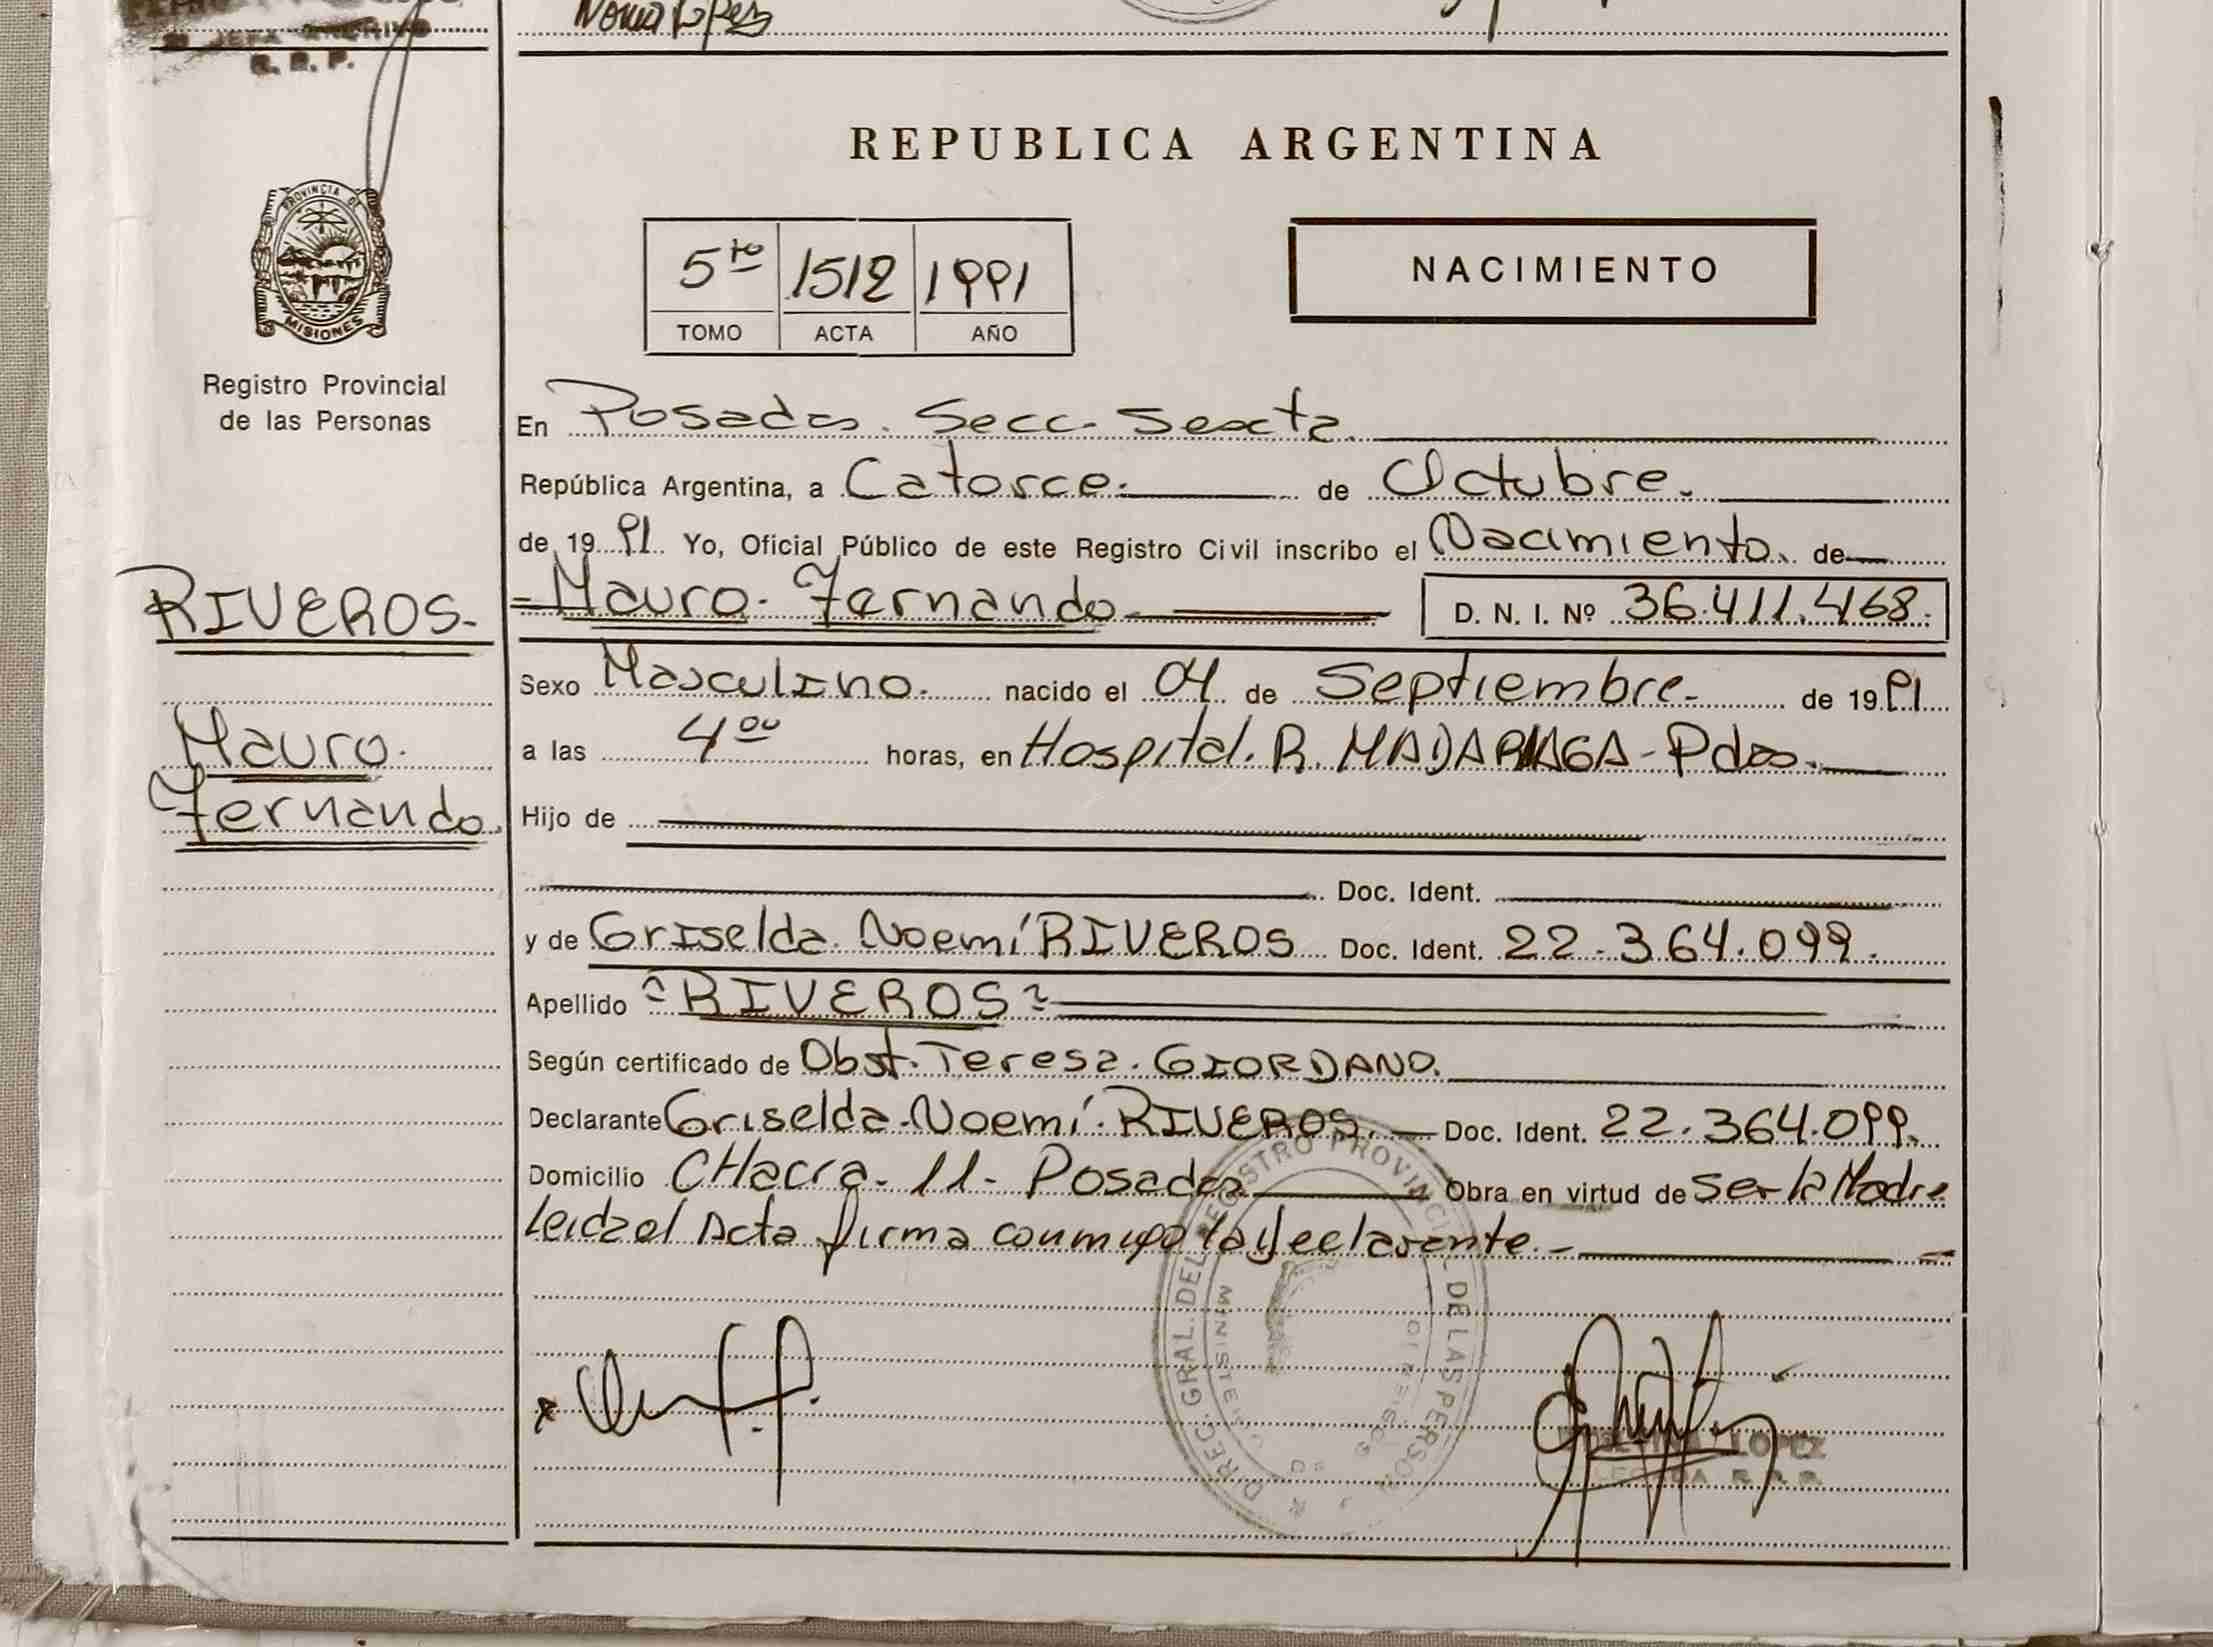 JEFA ARCHIVO
R. R. P.
Norma Lopez
REPUBLICA ARGENTINA
PROVINCIA DE
MISIONES
Registro Provincial
de las Personas
5to 1512 1991
TOMO ACTA AÑO
NACIMIENTO
En Posadas. Secc. Sexta
República Argentina, a Catorce. de Octubre.
de 19 91 Yo, Oficial Público de este Registro Civil inscribo el Nacimiento. de
RIVEROS. Mauro. Fernando D. N. I. Nº 36.411.468.
Sexo Masculino. nacido el 04 de Septiembre. de 19 91
Mauro. a las 4 00 horas, en Hospital. R. MADARIAGA - Pdas.
Fernando. Hijo de
Doc. Ident.
y de Griselda. Noemí RIVEROS Doc. Ident. 22.364.099.
Apellido "RIVEROS"
Según certificado de Obst. Teresa. GIORDANO.
Declarante Griselda. Noemí. RIVEROS. Doc. Ident. 22.364.099.
Domicilio CHacra. 11 - Posadas Obra en virtud de ser la Madre
Leida el Acta firma conmigo la declarante.
DIREC. GRAL. DEL REGISTRO PROVINCIAL DE LAS PERSONAS
LOPEZ